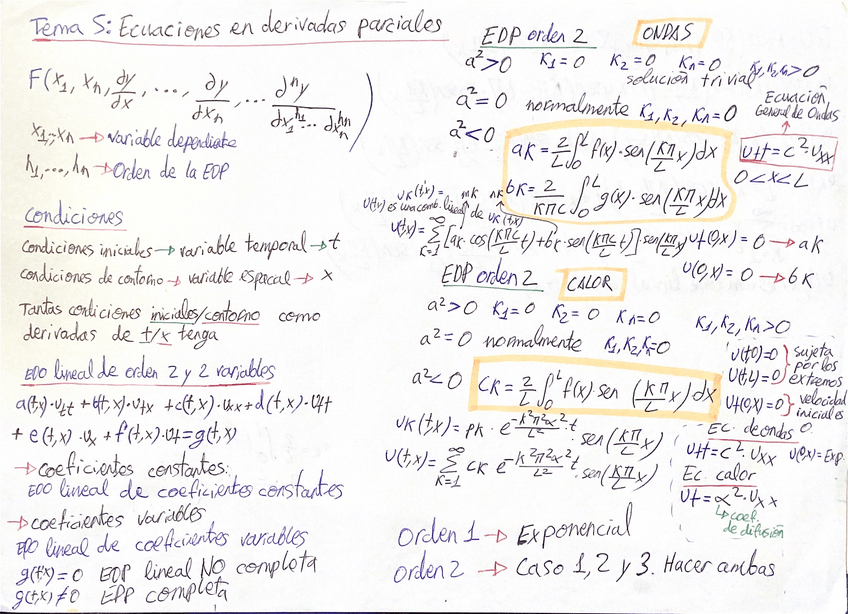 Tema 5: Ecuaciones en derivadas parciales
F(x₁, xₙ, ∂y/∂x, ..., ∂y/∂xₙ, ... ∂ⁿy/∂x₁^h₁...∂xₙ^hₙ)
x₁,...,xₙ → variable dependiente
h₁,...,hₙ → Orden de la EDP
Condiciones
Condiciones iniciales → variable temporal → t
condiciones de contorno → variable espacial → x
Tantas condiciones iniciales/contorno como
derivadas de t/x tenga
EDO lineal de orden 2 y 2 variables
a(t,x)·utt + b(t,x)·utx + c(t,x)·uxx + d(t,x)·utt
+ e(t,x)·ux + f(t,x)·ut = g(t,x)
→ coeficientes constantes:
EDO lineal de coeficientes constantes
→ coeficientes variables
EDO lineal de coeficientes variables
g(t,x) = 0 EDP lineal NO completa
g(t,x) ≠ 0 EDP completa
EDP orden 2 ONDAS
a²>0 K₁=0 K₂=0 Kn=0 K₁,K₂,Kn>0
solución trivial
a²=0 normalmente K₁, K₂, Kn=0
a²<0
aK = 2/L ∫₀ᴸ f(x)·sen(Kπ/L x)dx
bK = 2/Kπc ∫₀ᴸ g(x)·sen(Kπ/L x)dx
Ecuación
General de Ondas
utt = c²·uxx
0<x<L
uK(t,x) = mK nK
u(t,x) es una comb. lineal de uK(t,x)
u(t,x) = ∑ K=1 ∞ [aK·cos(Kπc/L t) + bK·sen(Kπc/L t)]·sen(Kπ/L x)
ut(0,x) = 0 → aK
u(0,x) = 0 → bK
EDP orden 2 CALOR
a²>0 K₁=0 K₂=0 Kn=0 K₁, K₂, Kn>0
a²=0 normalmente K₁,K₂,Kn=0
a²<0 CK = 2/L ∫₀ᴸ f(x) sen (Kπ/L x) dx
uK(t,x) = pK · e^(-K²π²α²/L² t) · sen(Kπ/L x)
u(t,x) = ∑ K=1 ∞ CK e^(-K²π²α²/L² t) · sen(Kπ/L x)
u(t,0)=0 } sujeta
u(t,L)=0 } por los
extremos
ut(0,x)=0 } velocidad
inicial es
0.
Ec. de ondas
utt = c²·uxx u(0,x)=Exp.
Ec. calor
ut = α²·uxx
↳ coef.
de difusión
Orden 1 → Exponencial
Orden 2 → Caso 1, 2 y 3. Hacer ambas